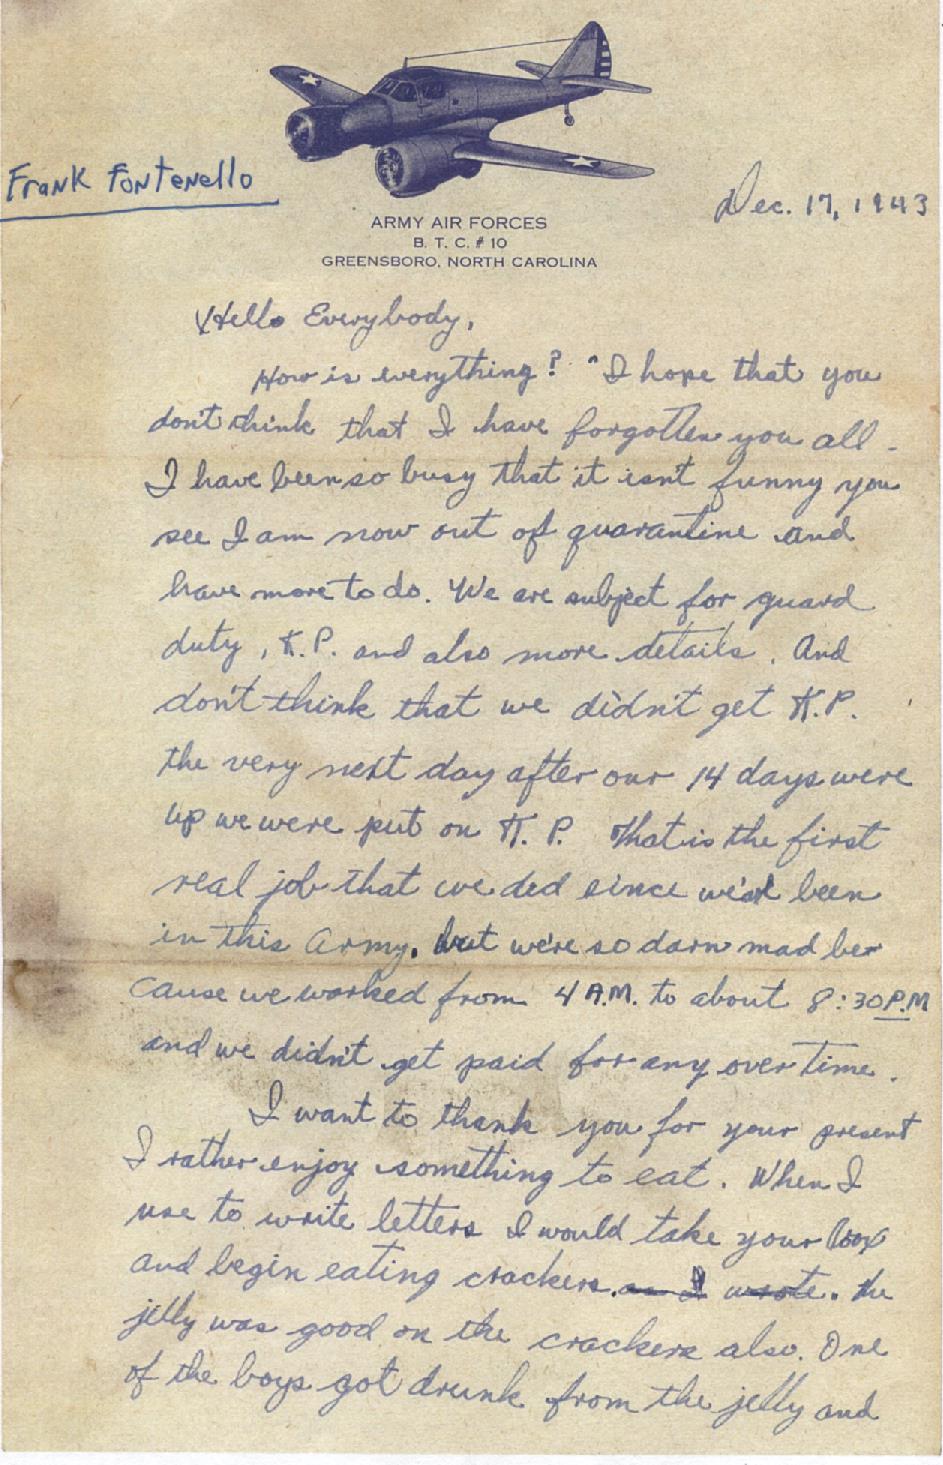 Frank Fontenello
Dec. 17, 1943
ARMY AIR FORCES
B. T. C. # 10
GREENSBORO, NORTH CAROLINA
Hello Everybody,
How is everything? "I hope that you
don't think that I have forgotten you all.
I have been so busy that it isn't funny you
see I am now out of quarantine and
have more to do. We are subject for guard
duty, K.P. and also more details. And
don't think that we didn't get K.P.
the very next day after our 14 days were
up we were put on K. P. That is the first
real job that we ded since we'd been
in this Army. but we're so darn mad be-
cause we worked from 4 A.M. to about 8:30 P.M
and we didn't get paid for any over time.
I want to thank you for your present
I rather enjoy something to eat. When I
use to write letters I would take your box
and begin eating crackers. as I wrote. the
jelly was good on the crackers also. One
of the boys got drunk from the jelly and